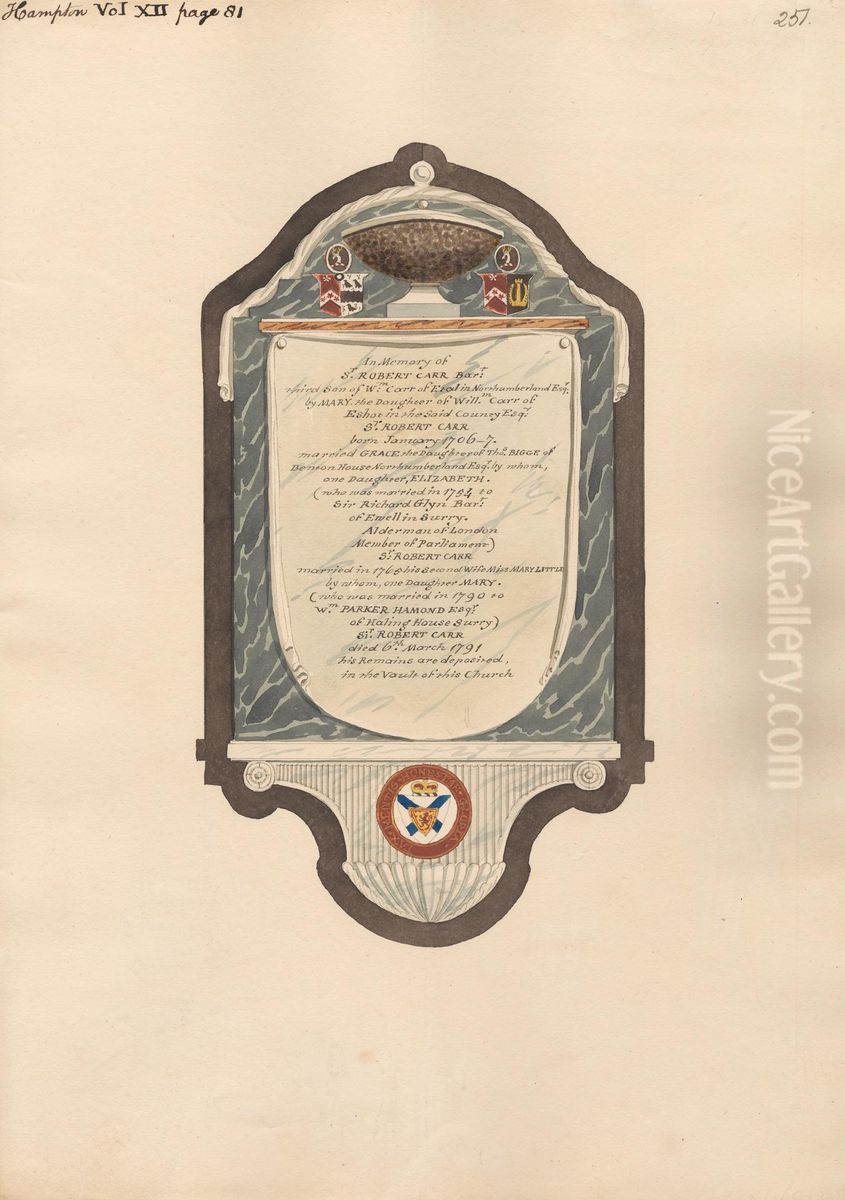 Hampton Vol XII page 81
251.
In Memory of
Sr. ROBERT CARR Bart.
third Son of Wm. Carr of Etal in Northumberland Esqr.
by MARY, the Daughter of Willm. Carr of
Eshot in the Said County Esqr.
Sr. ROBERT CARR
born January 1706-7.
married GRACE the Daughter of Thos. BIGGE of
Benton House Northumberland Esqr. by whom,
one Daughter, ELIZABETH.
(who was married in 1754 to
Sir Richard Glyn Bart.
of Ewell in Surry.
Alderman of London
Member of Parliament)
Sr. ROBERT CARR
married in 1765 his Second Wife Miss MARY LITTLE
by whom, one Daughter MARY.
(who was married in 1790 to
Wm. PARKER HAMOND Esqr.
of Haling House Surry)
Sir. ROBERT CARR
died 6th. March 1791
his Remains are deposited,
in the Vault of this Church
NiceArtGallery.com